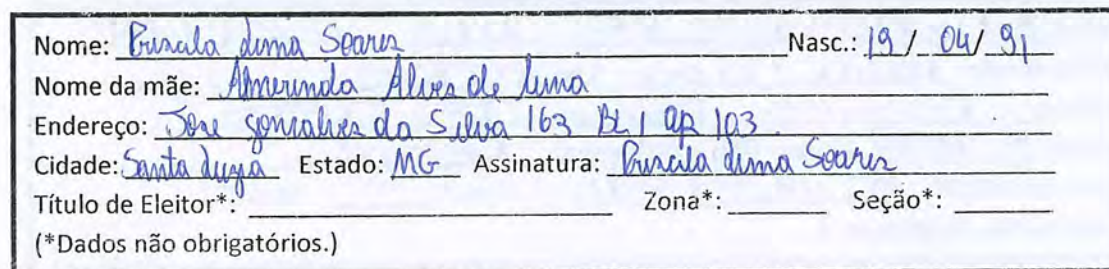 Nome: Priscila Lima Soares Nasc.: 19 / 04 / 91
Nome da mãe: Almerinda Alves de Lima
Endereço: Jose gonçalves da Silva 163 BL 1 ap 103.
Cidade: Santa Luzia Estado: MG Assinatura: Priscila Lima Soares
Título de Eleitor*: Zona*: Seção*:
(*Dados não obrigatórios.)